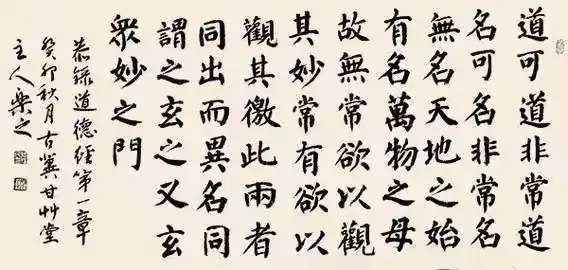 道可道非常道
名可名非常名
無名天地之始
有名萬物之母
故無常欲以觀
其妙常有欲以
觀其徼此兩者
同出而異名同
謂之玄之又玄
眾妙之門
恭録道德經第一章
癸卯秋月古冀甘艸堂
主人樂之